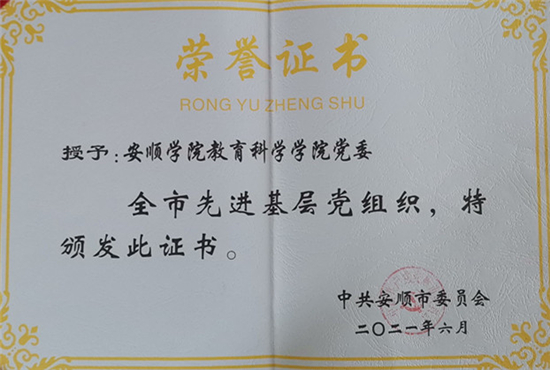 荣誉证书
RONG YU ZHENG SHU
授予:安顺学院教育科学学院党委
全市先进基层党组织，特
颁发此证书。
中共安顺市委员会
二〇二一年六月